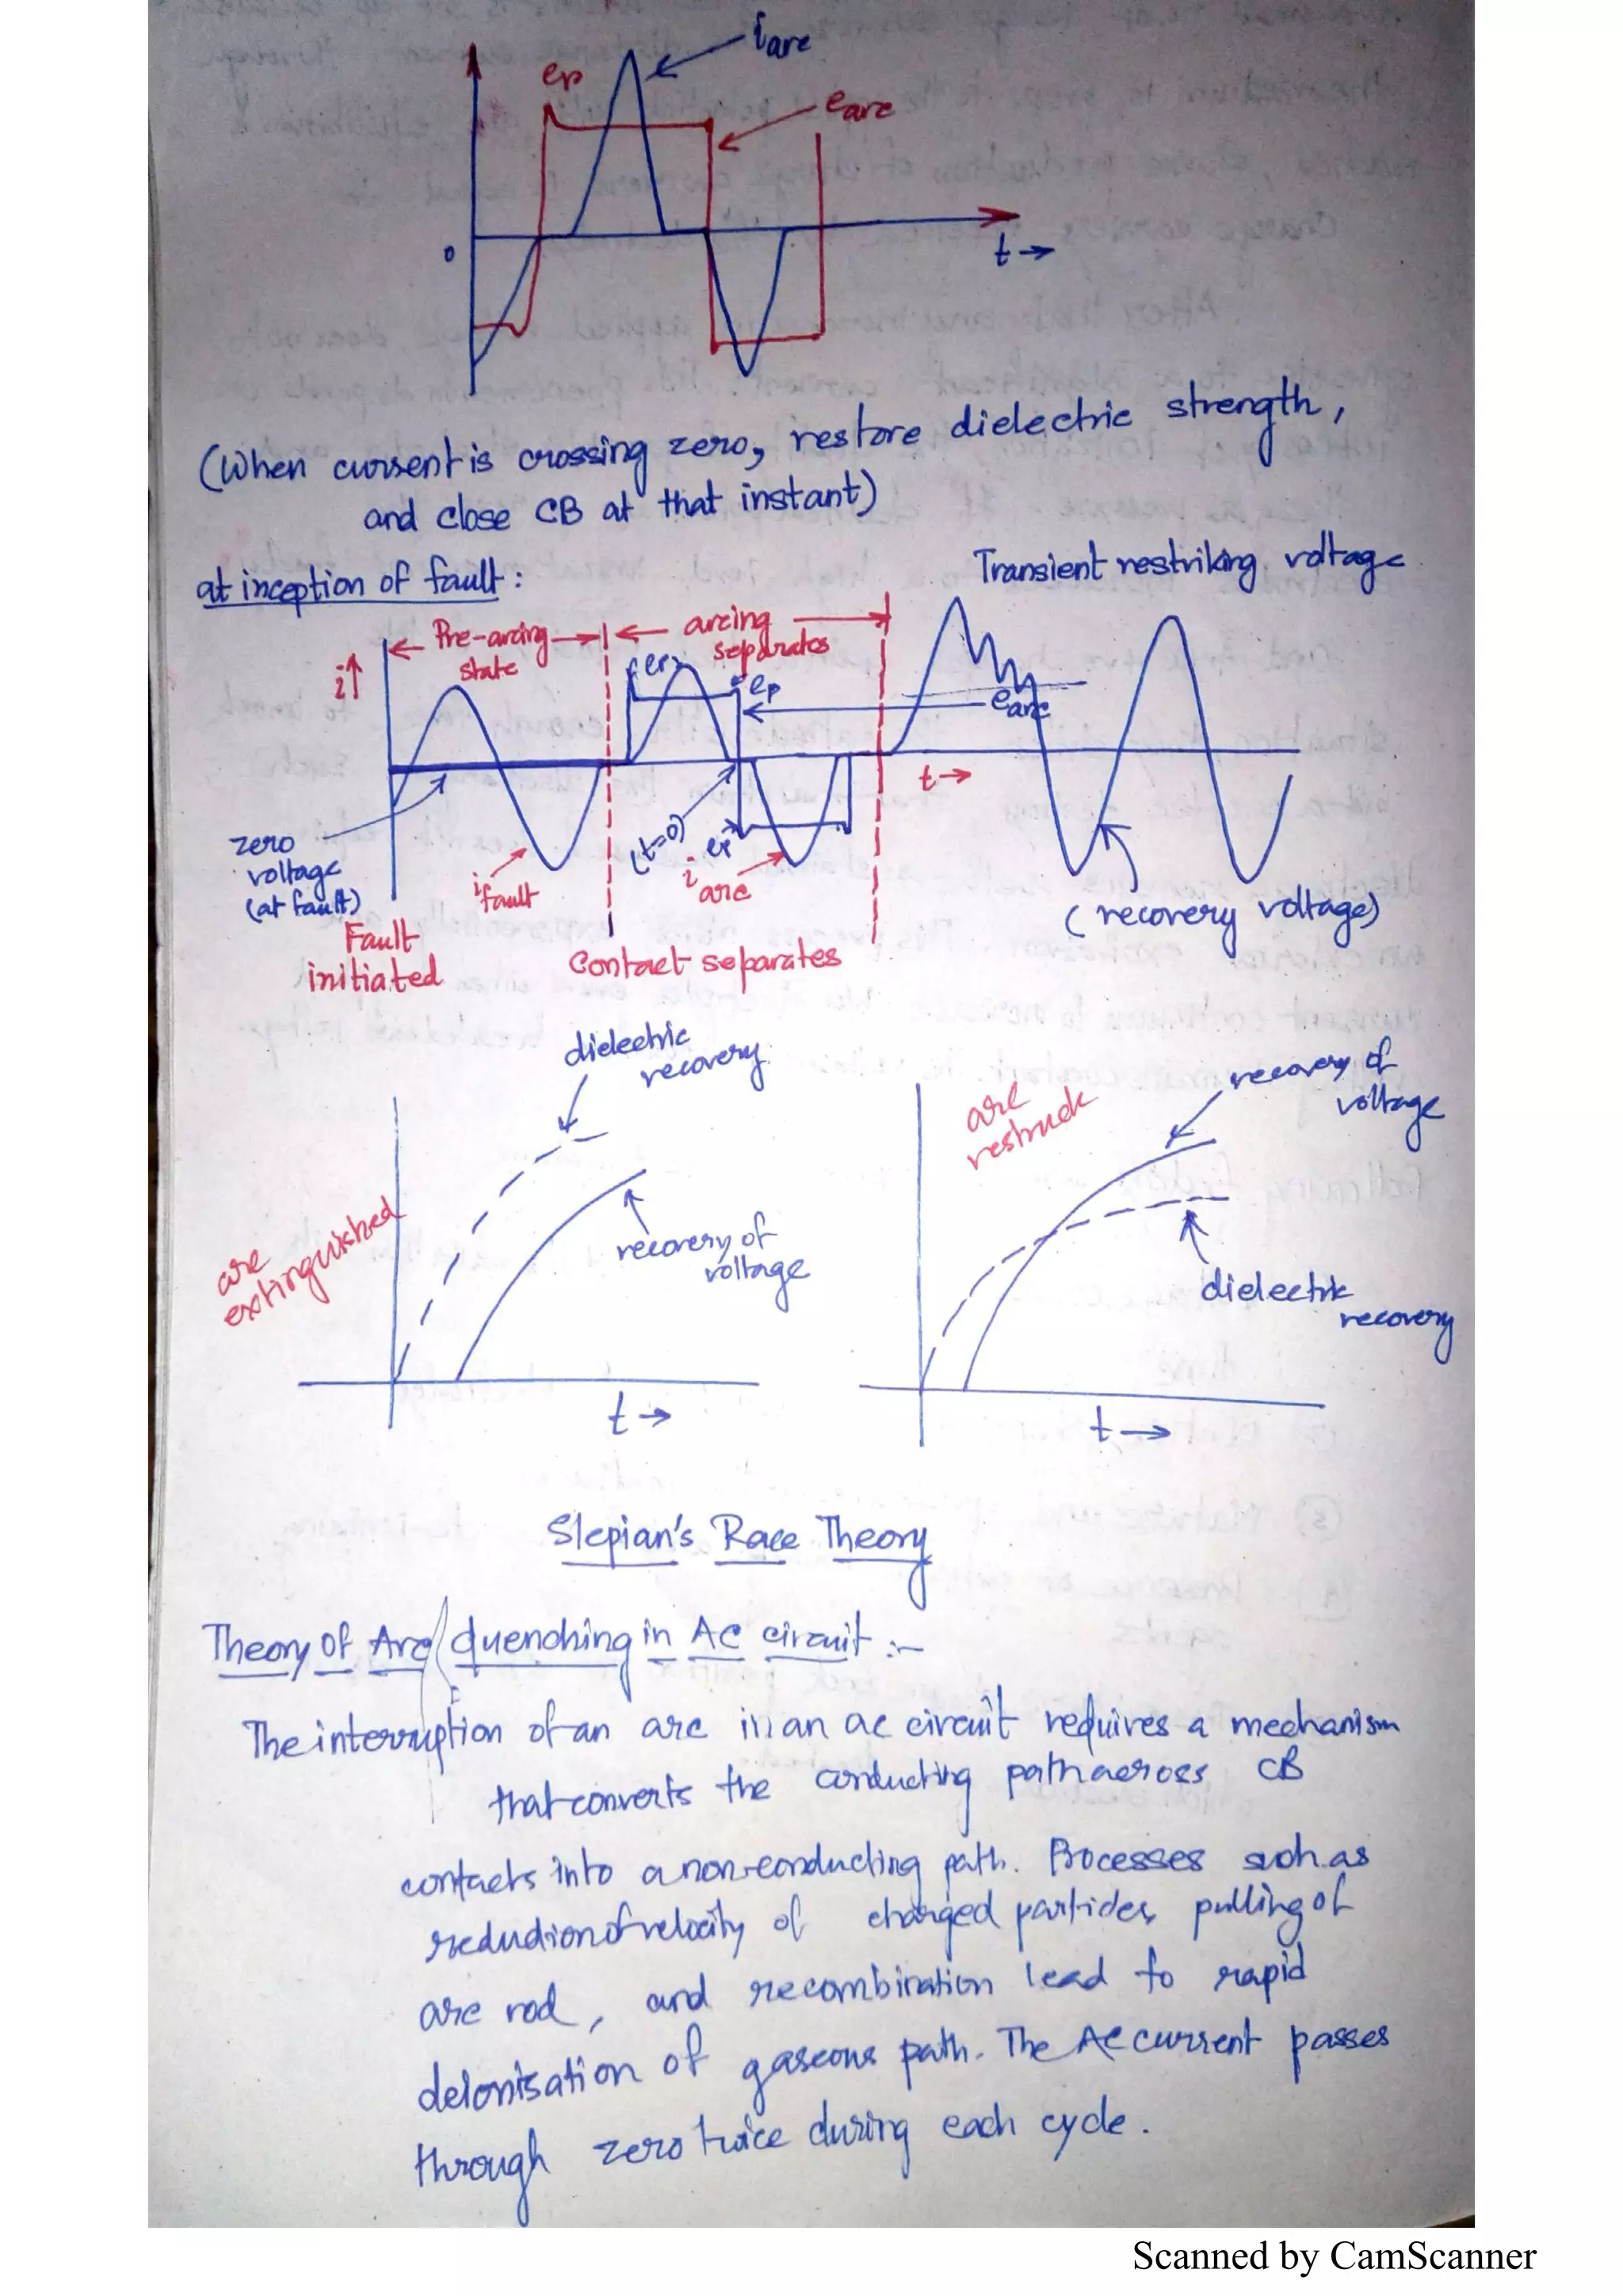 i arc
ep
e arc
0
t →
(When current is crossing zero, restore dielectric strength,
and close CB at that instant)
at inception of fault :
Transient restriking voltage
i↑
← Pre-arcing →
state
← arcing →
separates
er
ep
e arc
t →
zero
voltage
(at fault)
i fault
(t=0)
i arc
(recovery voltage)
Fault
initiated
Contact separates
dielectric
recovery
arc
extinguished
recovery of
voltage
t →
arc
restruck
recovery of
voltage
dielectric
recovery
t →
Slepian's Race Theory
Theory of Arc quenching in AC circuit :-
The interruption of an arc in an ac circuit requires a mechanism
that converts the conducting path across CB
contacts into a non-conducting path. Processes such as
reduction of velocity of charged particles, pulling of
arc rod, and recombination lead to rapid
deionisation of gaseous path. The AC current passes
through zero twice during each cycle.
Scanned by CamScanner